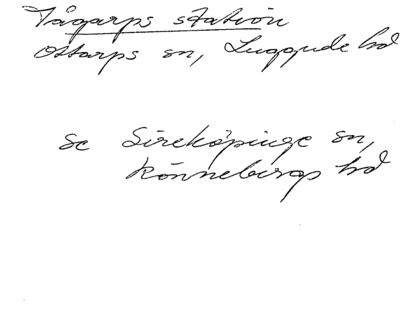 Tågarps station
Ottarps sn, Luggude hd
se Sireköpinge sn,
Rönnebergs hd